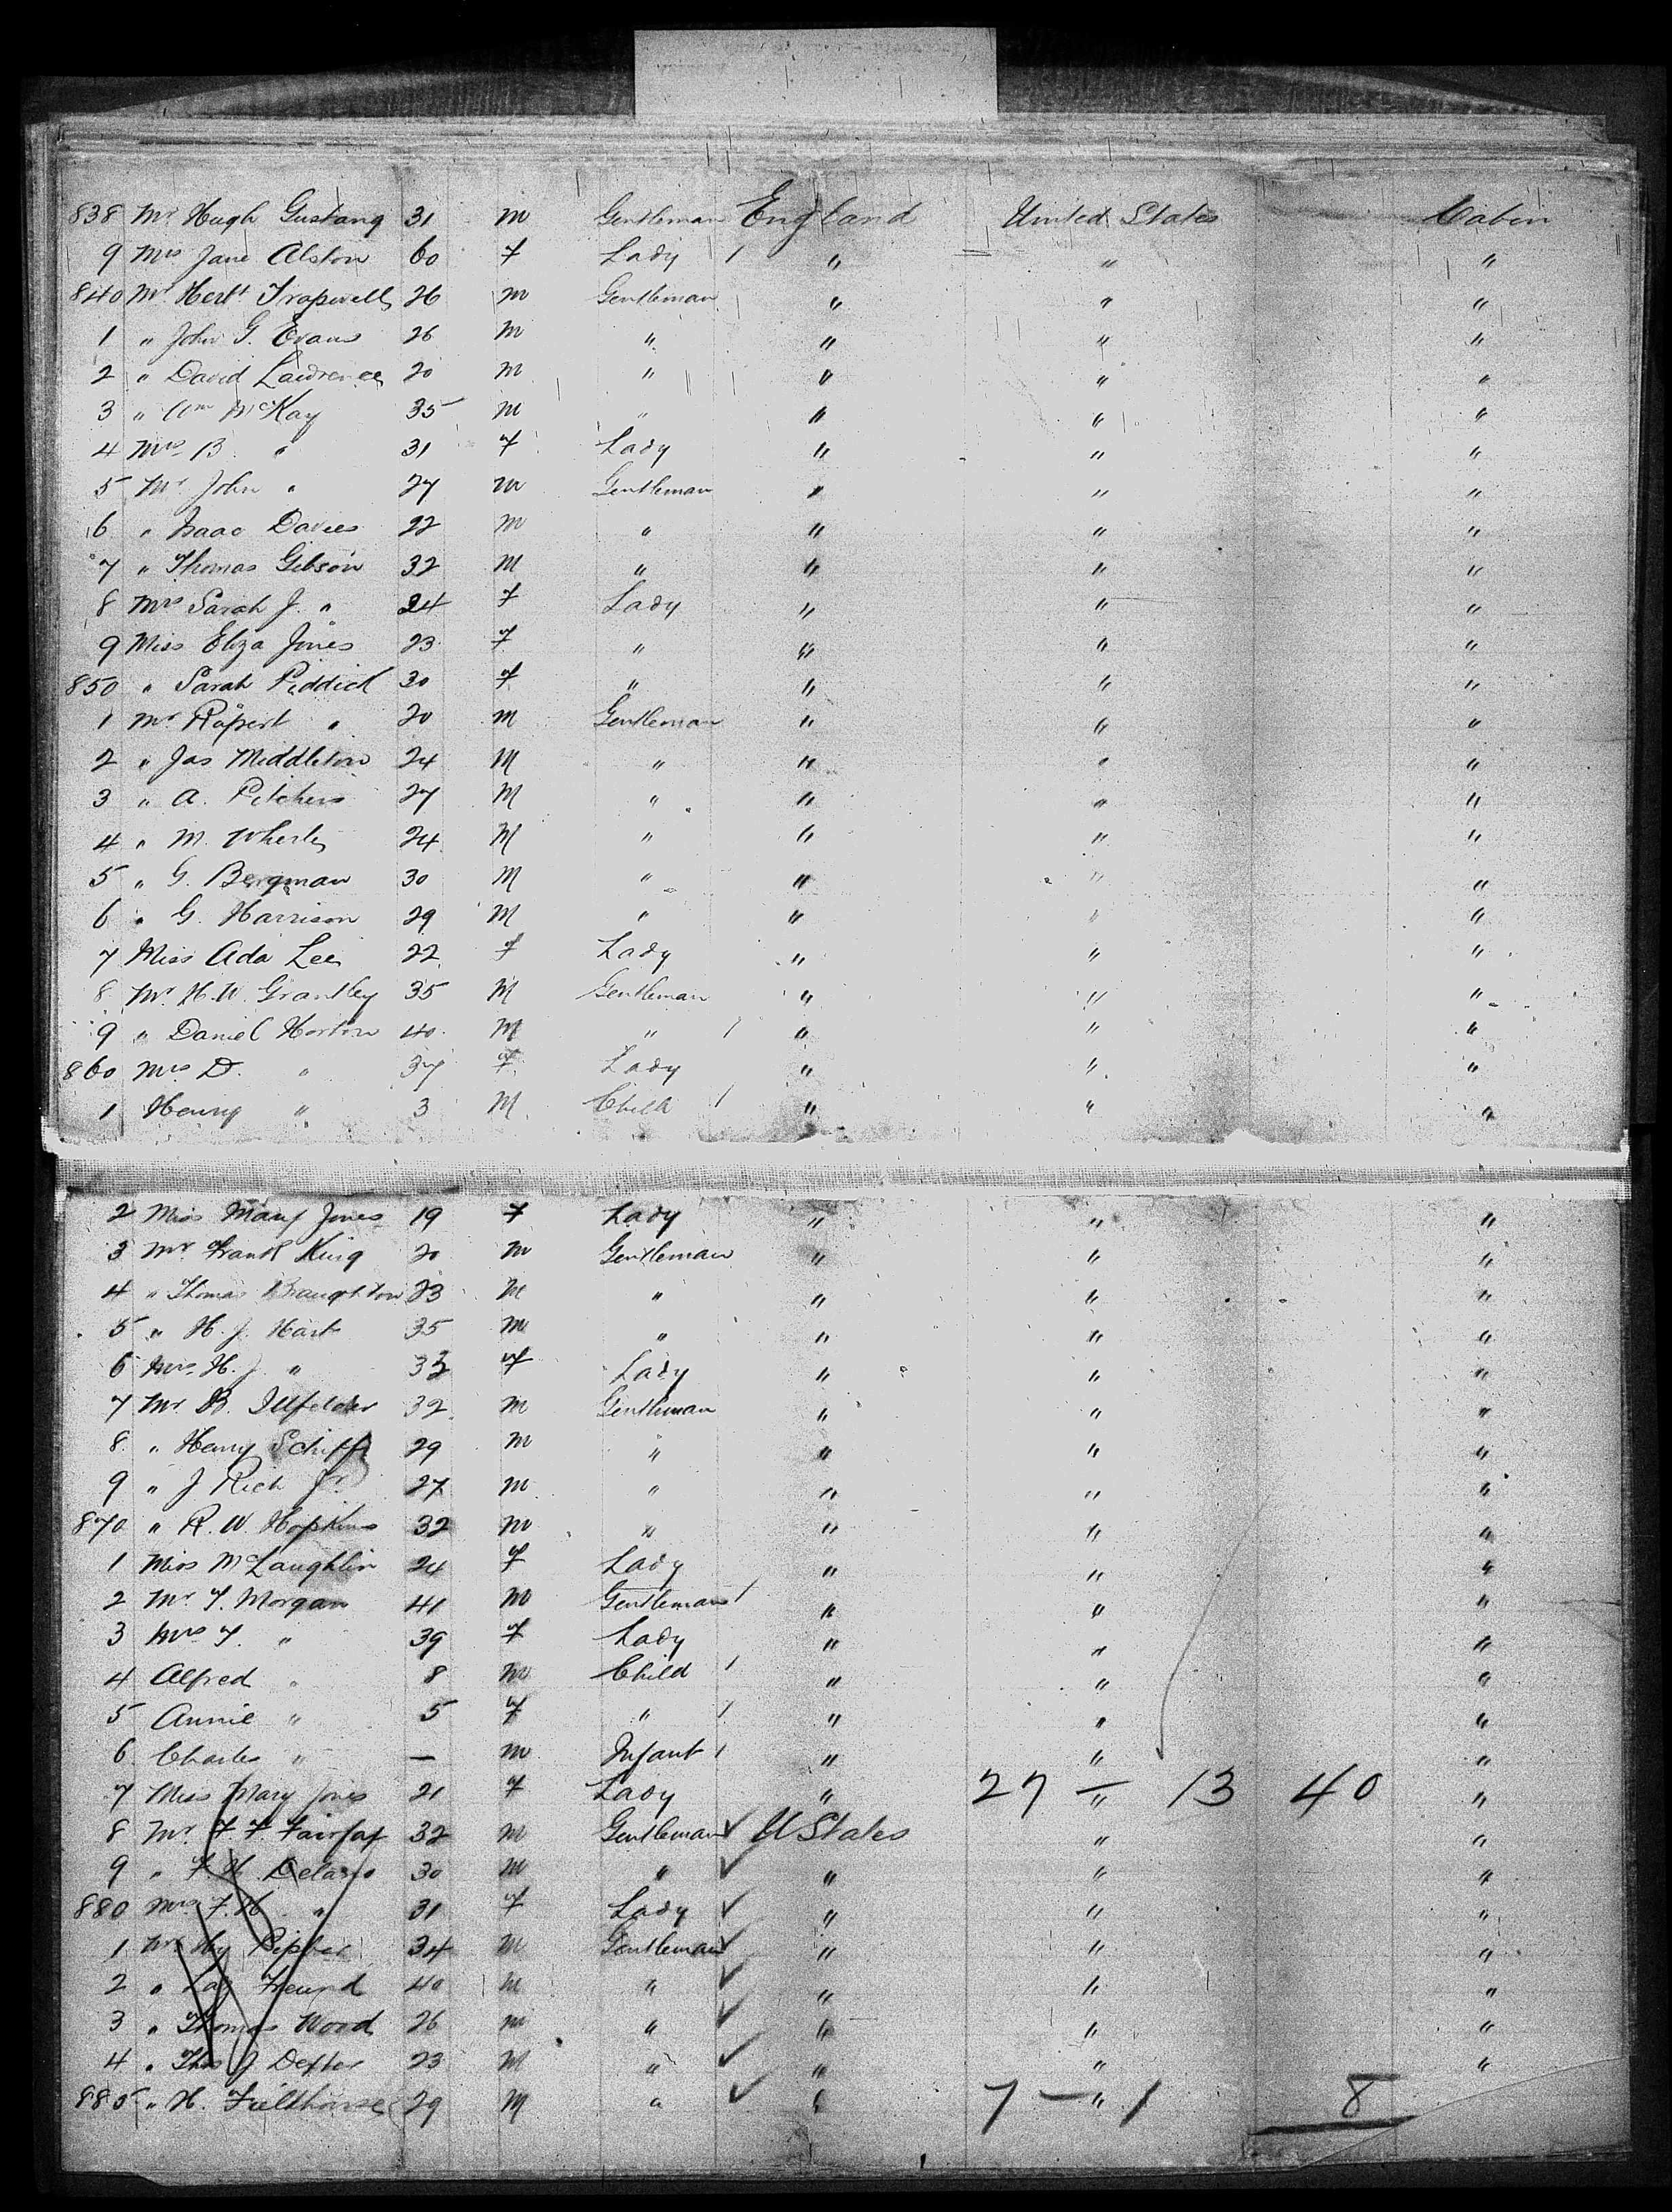 838 Mr Hugh Gustang 31 m Gentleman England United States Cabin
9 Mrs Jane Alston 60 f Lady / " " "
840 Mr Herbt Trapwell 26 m Gentleman " " "
1 " John G. Evans 26 m " " " "
2 " David Lawrence 20 m " " " "
3 " Wm McKay 35 m " " " "
4 Mrs B. " 31 f Lady " " "
5 Mr John " 27 m Gentleman " " "
6 " Isaac Davies 22 m " " " "
7 " Thomas Gibson 32 m " " " "
8 Mrs Sarah J. " 24 f Lady " " "
9 Miss Eliza Jones 23 f " " " "
850 " Sarah Piddick 30 f " " " "
1 Mr Rupert " 20 m Gentleman " " "
2 " Jas Middleton 24 M " " " "
3 " A. Pitchers 27 M " " " "
4 " M. 24 M " " " "
5 " G. Bergman 30 M " " " "
6 " G. Harrison 29 M " " " "
7 Miss Ada Lee 22 f Lady " " "
8 Mr. H. W. Grantley 35 M Gentleman " " "
9 " Daniel Horton 40 M " / " " "
860 Mrs D. " 37 f Lady " " "
1 Henry " 3 M Child / " " "
2 Miss Mary Jones 19 f Lady " " "
3 Mr. Frank King 20 m Gentleman " " "
4 " Thomas Braughton 23 M " " " "
5 " H. J. Hart 35 m " " " "
6 Mrs. H. J " 33 f Lady " " "
7 Mr. B. Illfelder 32 m Gentleman " " "
8 " Henry Schiff 29 m " " " "
9 " J Rich Jr 27 m " " " "
870 " R. W. Hopkins 32 m " " " "
1 Miss McLaughlin 24 f Lady " " "
2 Mr T. Morgan 41 m Gentleman / " " "
3 Mrs T. " 39 f Lady " " "
4 Alfred " 8 m Child / " " "
5 Annie " 5 f " / " " "
6 Charles " — m Infant / " " "
7 Miss Mary Jones 21 f Lady " 27 — " 13 40 "
8 Mr. F. F. Fairfax 32 m Gentleman ✓ U States " "
9 " F. H. Delano 30 m " ✓ " " "
880 Mrs F. H. " 31 f Lady ✓ " " "
1 Mr Hy 34 m Gentleman ✓ " " "
2 " Freund 40 m " ✓ " " "
3 " Thomas Wood 26 m " ✓ " " "
4 " Thos J. Dexter 23 M " ✓ " " "
885 " H. Fieldhouse 29 M " ✓ " 7 — " 1 8